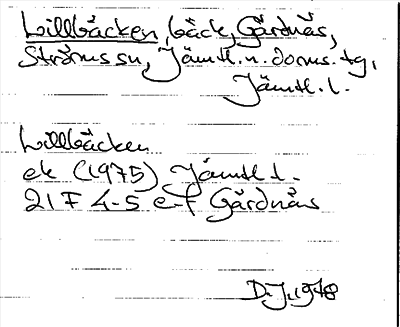 Lillbäcken, bäck, Gärdnäs,
Ströms sn, Jämtl. n. doms. tg,
Jämtl. l.
Lillbäcken
ek (1975) Jämtl l.
21 F 4-5 e-f Gärdnäs
D.J. 1978